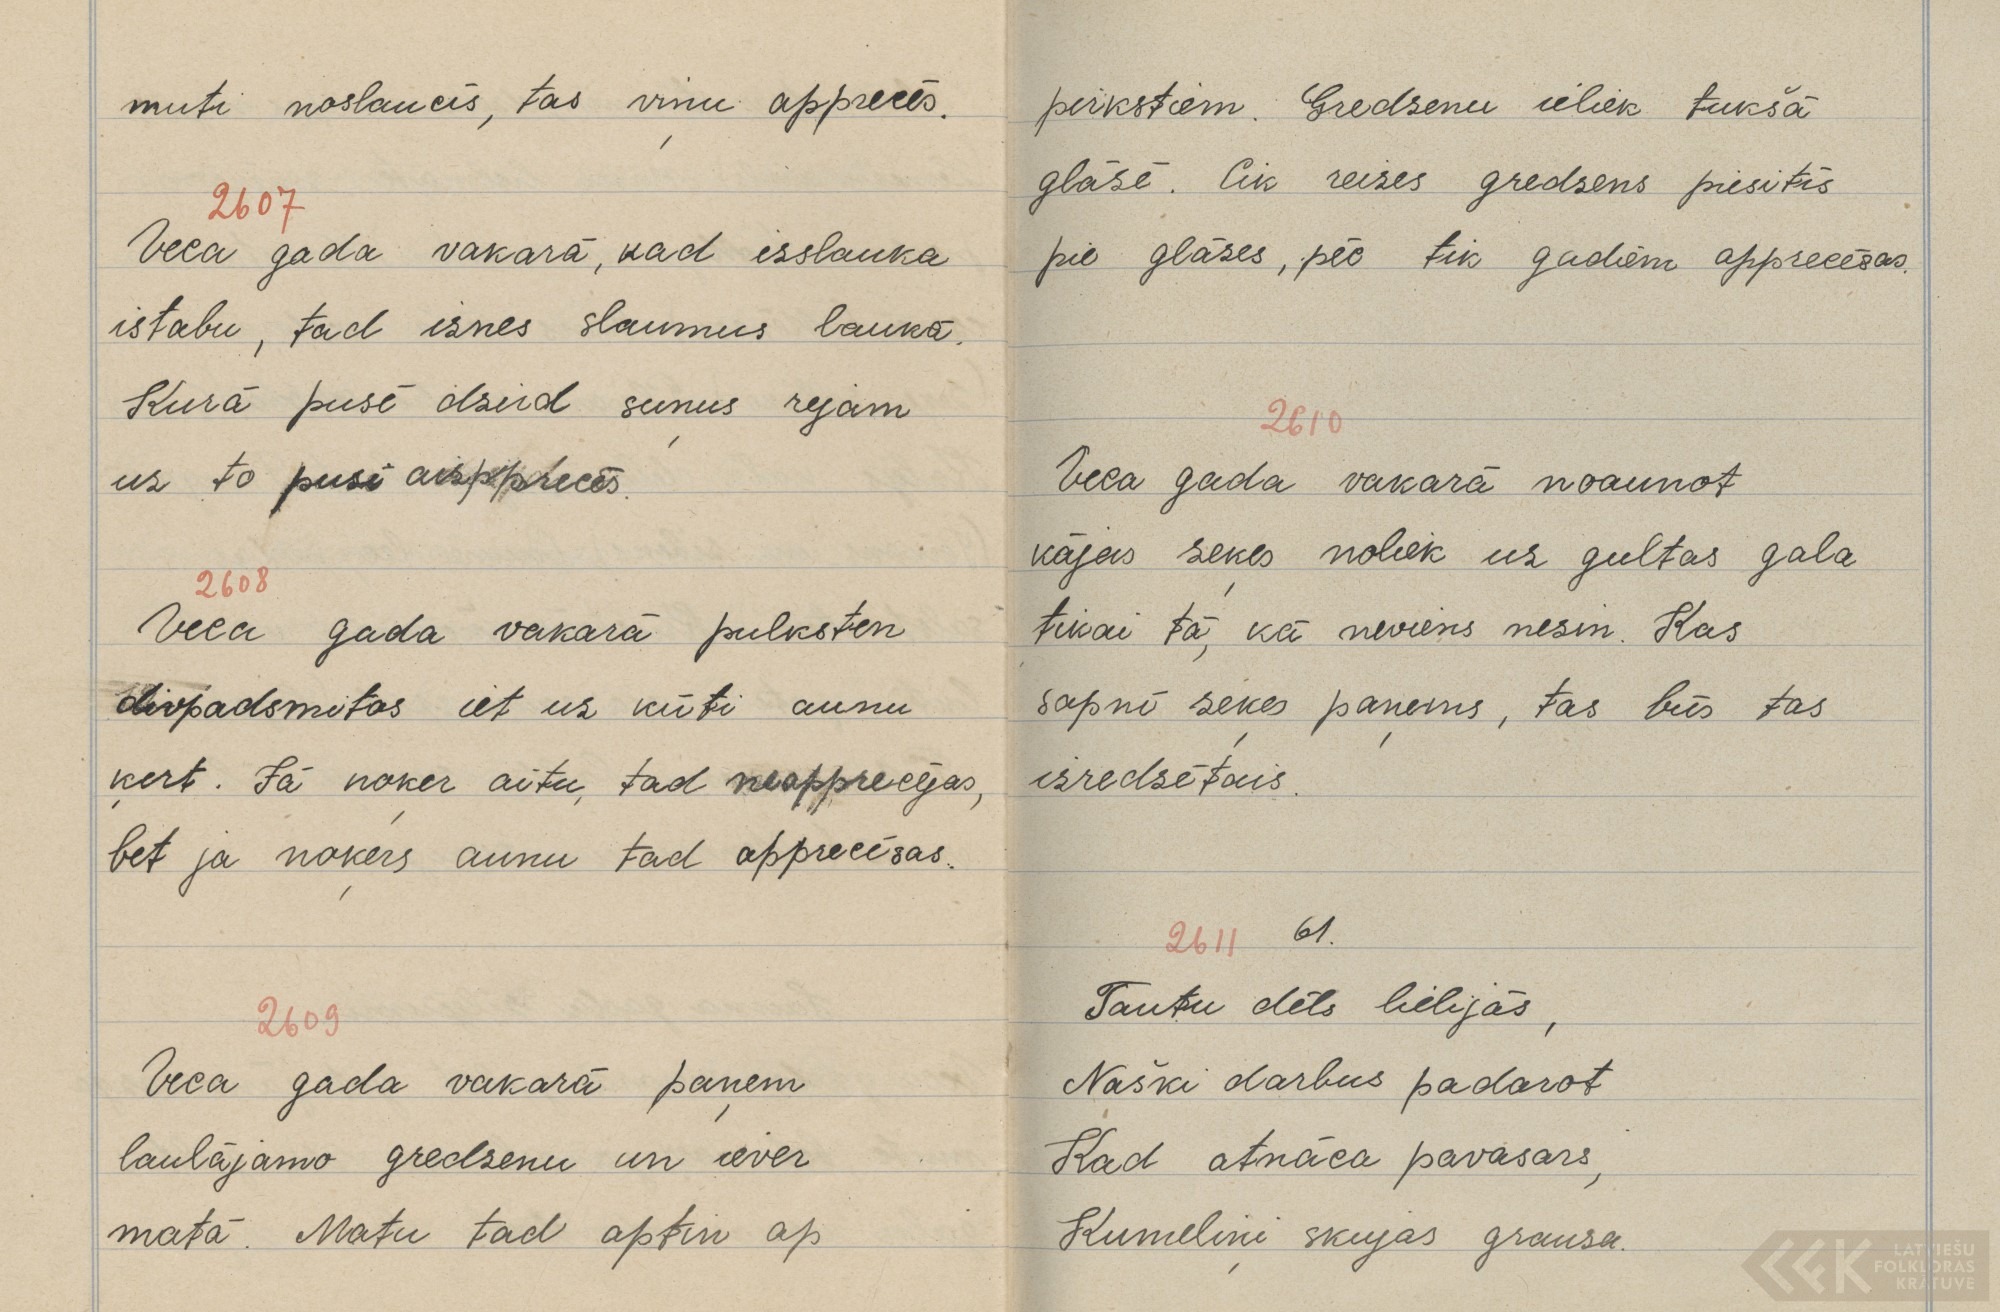 muti noslaucīs, tas viņu apprecēs.
2607
Veca gada vakarā, kad izslauka
istabu, tad iznes slaumus laukā.
Kurā pusē dzird suņus rejam
uz to pusi aizpprecēs.
2608
Veca gada vakarā pulksten
divpadsmitos iet uz kūti aunu
ķert. Jā noķer aitu, tad neapprecējas,
bet ja noķers aunu tad apprecēsas.
2609
Veca gada vakarā paņem
laulājamo gredzenu un iever
matā. Matu tad aptin ap
pirkstiem. Gredzenu ieliek tukšā
glāzē. Cik reizes gredzens piesitīs
pie glāzes, pēc tik gadiem apprecēsas.
2610
Veca gada vakarā noaunot
kājas zeķes noliek uz gultas gala
tikai tā, kā neviens nezin. Kas
sapnī zeķes paņems, tas būs tas
izredzētais.
2611 61.
Tautu dēls lielijās,
Naški darbus padarot
Kad atnāca pavasars,
Kumeliņi skujas grauza.
LATVIEŠU
FOLKLORAS
KRĀTUVE